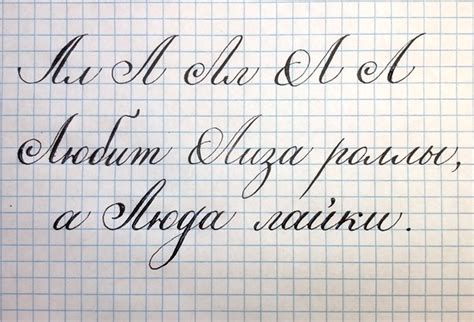 Лл Л Лл Л Л
Любит Лиза роллы,
а Люда лайки.